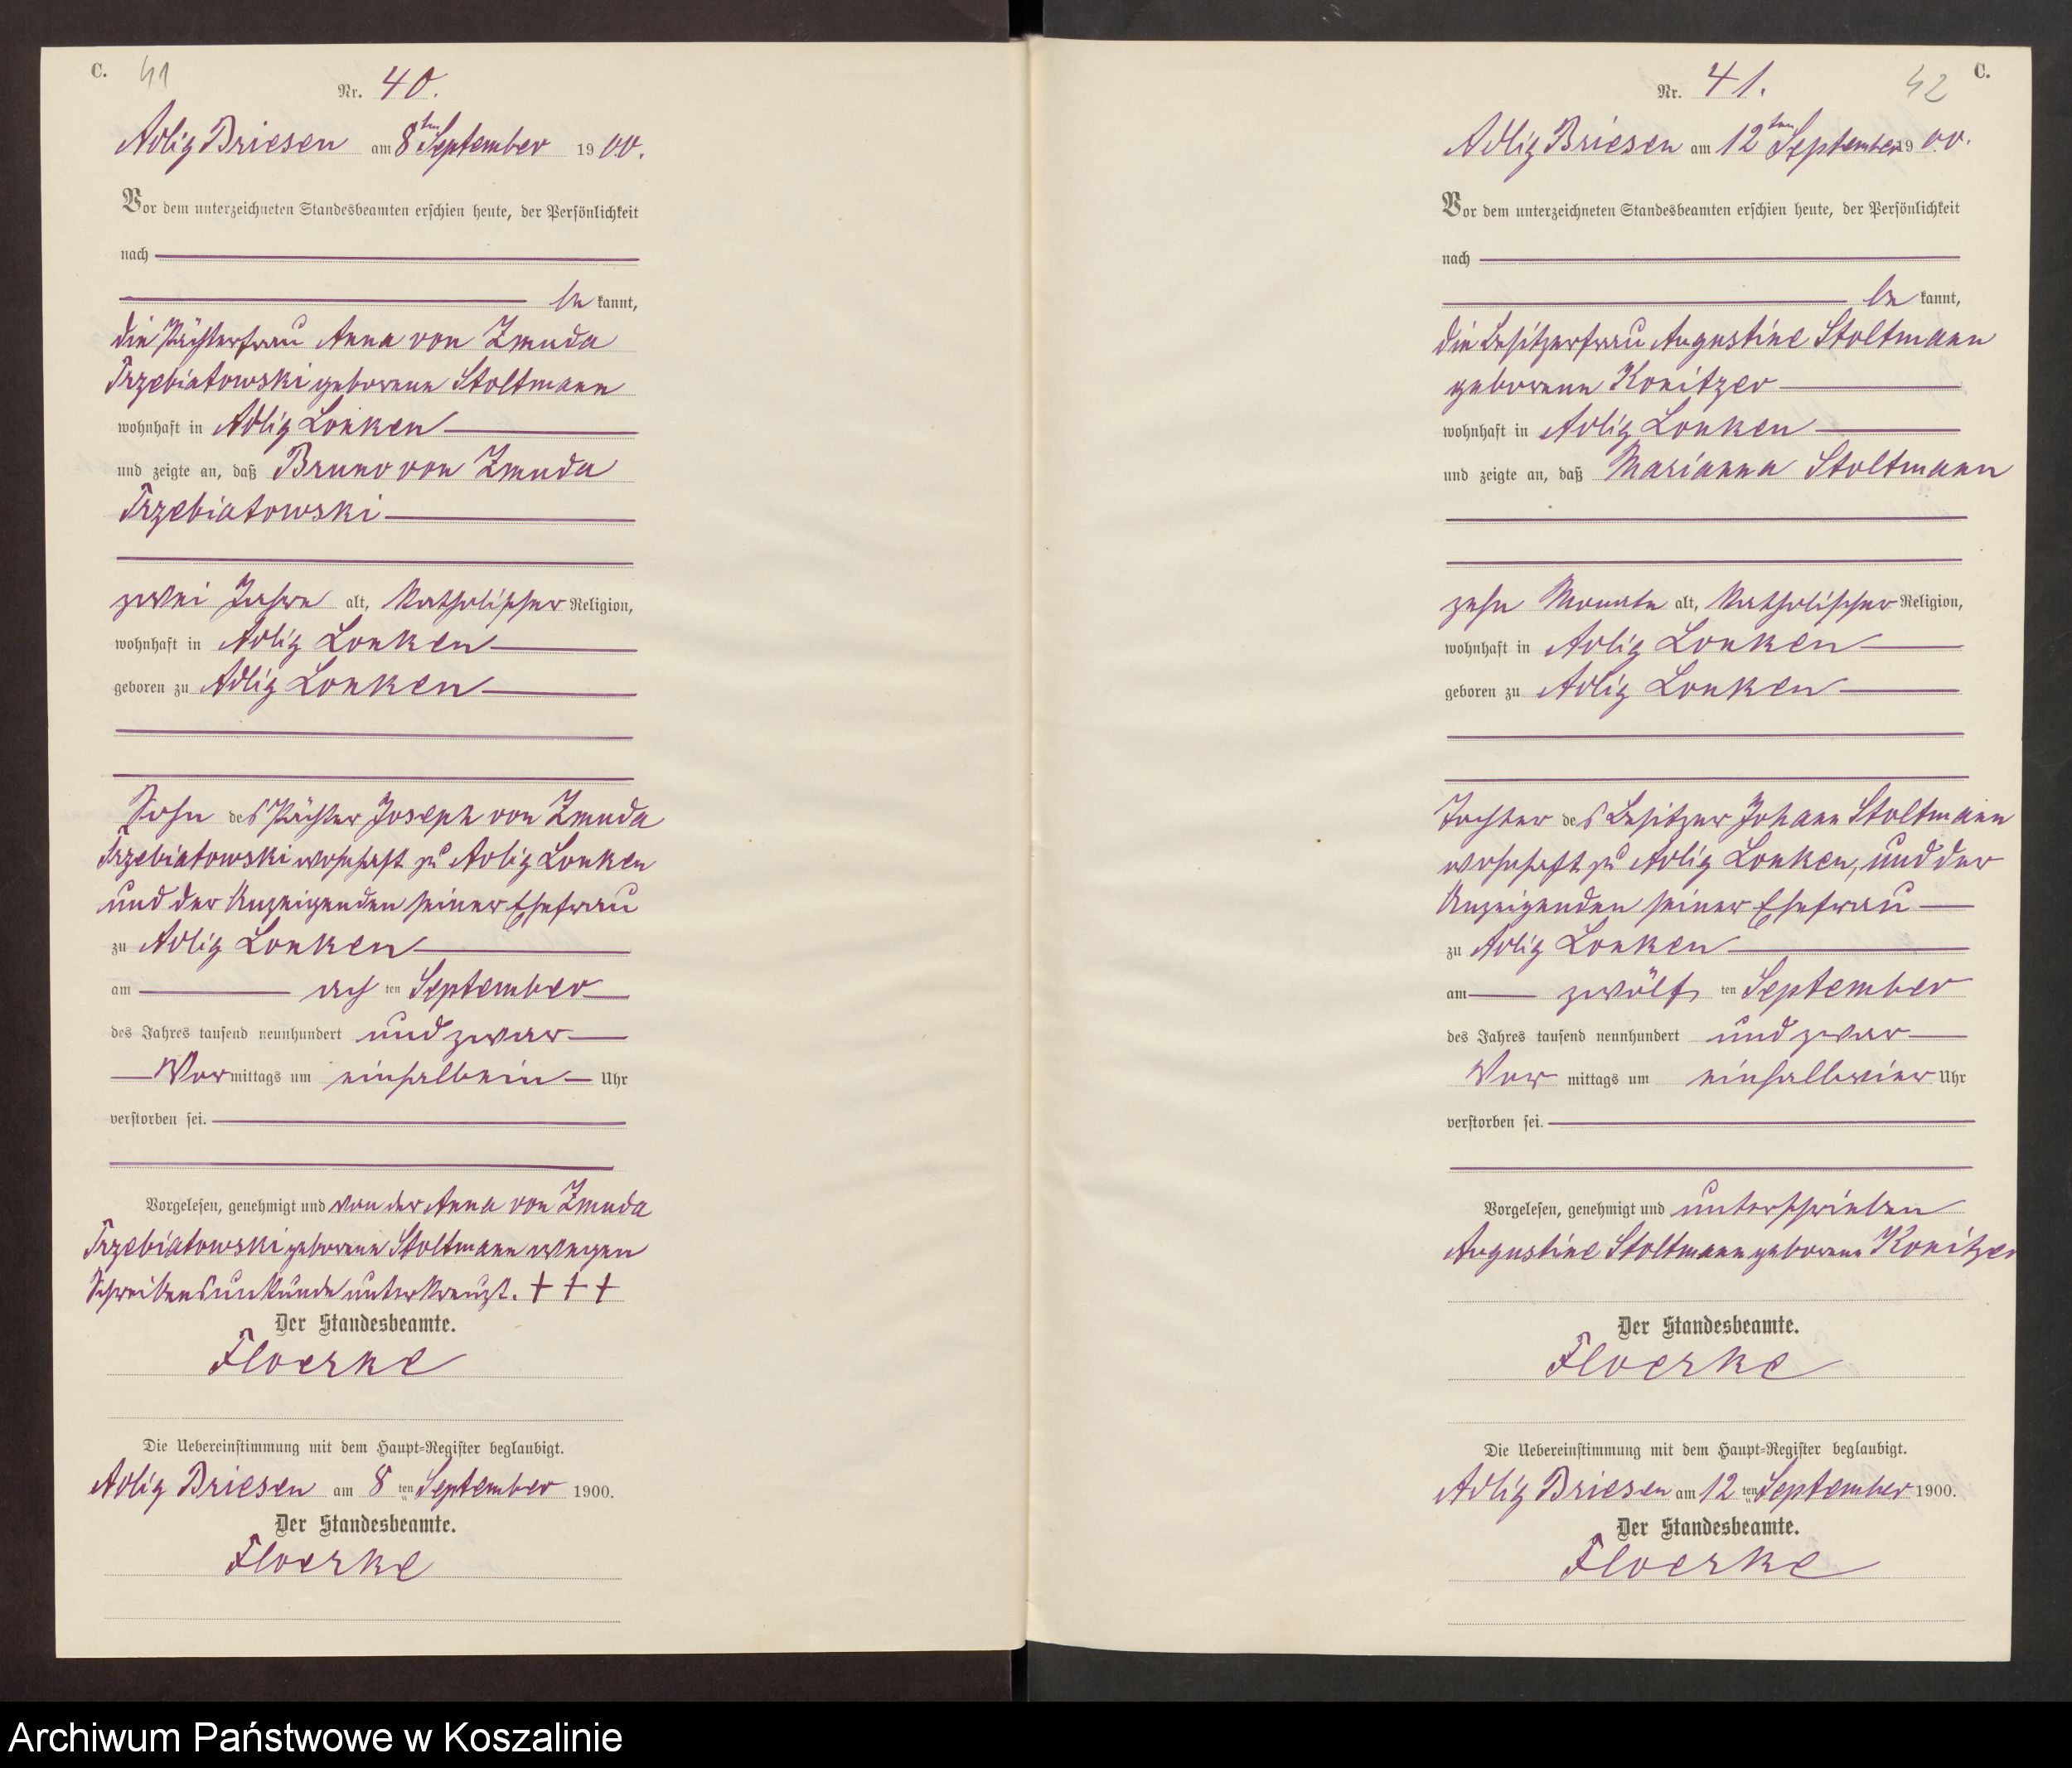 C. 41
Nr. 40.
Adlig Briesen am 8ten September 1900.
Vor dem unterzeichneten Standesbeamten erschien heute, der Persönlichkeit
nach
be kannt,
die Pächterfrau Anna von Zmuda
Trzebiatowski geborene Stoltmann
wohnhaft in Adlig Lonken
und zeigte an, daß Bruno von Zmuda
Trzebiatowski
zwei Jahre alt, katholischer Religion,
wohnhaft in Adlig Lonken
geboren zu Adlig Lonken
Sohn des Pächter Joseph von Zmuda
Trzebiatowski wohnhaft zu Adlig Lonken
und der Anzeigenden seiner Ehefrau
zu Adlig Lonken
am ach ten September
des Jahres tausend neunhundert und zwar
Vormittags um einhalbein Uhr
verstorben sei.
Vorgelesen, genehmigt und von der Anna von Zmuda
Trzebiatowski geborene Stoltmann wegen
Schreibensunkunde unterkreuzt. + + +
Der Standesbeamte.
Floerke
Die Uebereinstimmung mit dem Haupt-Register beglaubigt.
Adlig Briesen am 8 ten September 1900.
Der Standesbeamte.
Floerke
42 C.
Nr. 41.
Adlig Briesen am 12ten September 1900.
Vor dem unterzeichneten Standesbeamten erschien heute, der Persönlichkeit
nach
be kannt,
die Besitzerfrau Augustine Stoltmann
geborene Konitzer
wohnhaft in Adlig Lonken
und zeigte an, daß Marianna Stoltmann
zehn Monate alt, katholischer Religion,
wohnhaft in Adlig Lonken
geboren zu Adlig Lonken
Tochter des Besitzer Johann Stoltmann
wohnhaft zu Adlig Lonken, und der
Anzeigenden seiner Ehefrau
zu Adlig Lonken
am zwölf ten September
des Jahres tausend neunhundert und zwar
Vor mittags um einhalbvier Uhr
verstorben sei.
Vorgelesen, genehmigt und unterschrieben
Augustine Stoltmann geborene Konitzer
Der Standesbeamte.
Floerke
Die Uebereinstimmung mit dem Haupt-Register beglaubigt.
Adlig Briesen am 12 ten September 1900.
Der Standesbeamte.
Floerke
Archiwum Państwowe w Koszalinie